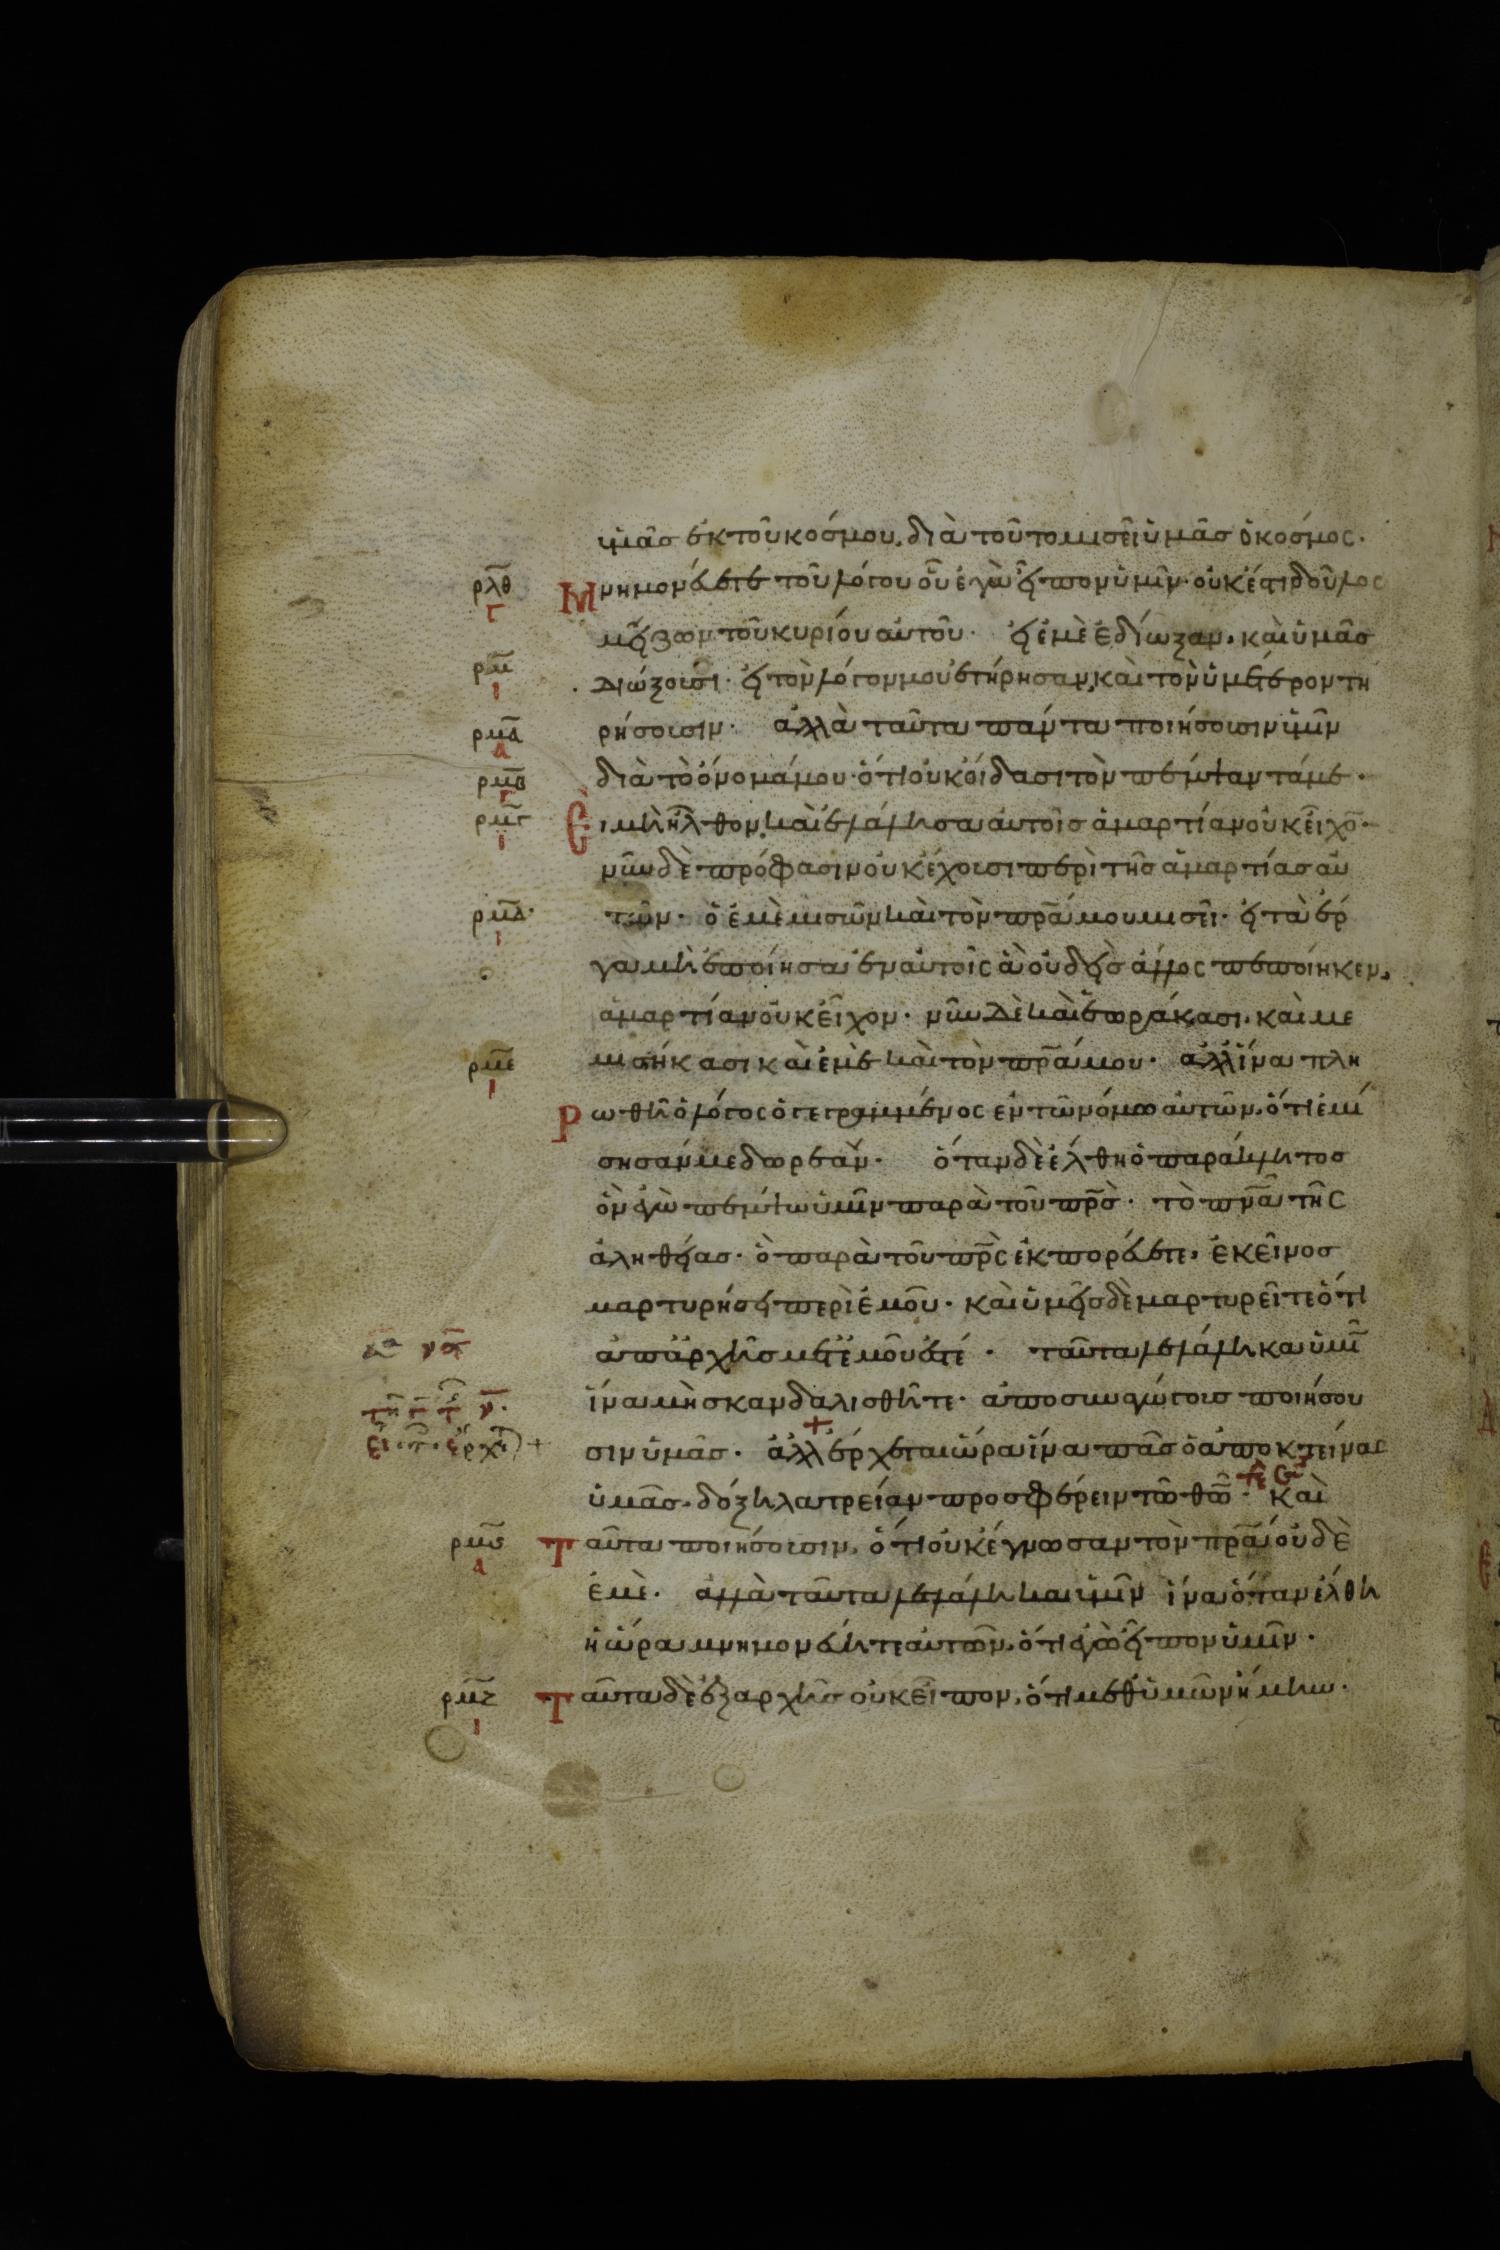 ὑμᾶς ἐκ τοῦ κόσμου, διὰ τοῦτο μισεῖ ὑμᾶς ὁ κόσμος.
ρλθ Μνημονεύετε τοῦ λόγου οὗ ἐγὼ εἶπον ὑμῖν· οὐκ ἔστι δοῦλος
γ
μείζων τοῦ κυρίου αὐτοῦ· εἰ ἐμὲ ἐδίωξαν, καὶ ὑμᾶς
ρμ διώξουσι· εἰ τὸν λόγον μου ἐτήρησαν, καὶ τὸν ὑμέτερον τη
ι
ρμα ρήσουσιν· ἀλλὰ ταῦτα πάντα ποιήσουσιν ὑμῖν
α
ρμβ διὰ τὸ ὄνομά μου· ὅτι οὐκ οἴδασι τὸν πέμψαντά με·
γ
ρμγ Εἰ μὴ ἦλθον καὶ ἐλάλησα αὐτοῖς ἁμαρτίαν οὐκ εἶχο̄·
ι
νῦν δὲ πρόφασιν οὐκ ἔχουσι περὶ τῆς ἁμαρτίας αὐ
ρμδ τῶν· ὁ ἐμὲ μισῶν καὶ τὸν πρ̄α μου μισεῖ· εἰ τὰ ἔρ
ι
γα μὴ ἐποίησα ἐν αὐτοῖς ἃ οὐδεὶς ἄλλος πεποίηκεν,
ἁμαρτίαν οὐκ εἶχον· νῦν δὲ καὶ ἑωράκασι, καὶ με
ρμε μισήκασι καὶ ἐμὲ καὶ τὸν πρ̄α μου· ἀλλ' ἵνα πλη
ι
ρωθῆ ὁ λόγος ὁ γεγραμμένος ἐν τῶ νόμω αὐτῶν, ὅτι ἐμί
σησάν με δωρεάν· ὅταν δὲ ἔλθη ὁ παράκλητος
ὃν ἐγὼ πέμψω ὑμῖν παρὰ τοῦ πρ̄ς· τὸ πν̄α τῆς
ἀληθείας· ὃ παρὰ τοῦ πρ̄ς ἐκπορεύεται, ἐκεῖνος
μαρτυρήσει περὶ ἐμοῦ· καὶ ὑμεῖς δὲ μαρτυρεῖτε ὅτι
ἀπ' ἀρχῆς μετ' ἐμοῦ ἐστέ· ταῦτα λελάληκα ὑμῖ
ἵνα μὴ σκανδαλισθῆτε· ἀποσυναγώγους ποιήσου
σιν ὑμᾶς· ἀλλ' ἔρχεται ὥρα ἵνα πᾶς ὁ ἀποκτείνας
ὑμᾶς, δόξη λατρείαν προσφέρειν τῶ θω̄· καὶ
ρμϛ Ταῦτα ποιήσουσιν, ὅτι οὐκ ἔγνωσαν τὸν πρ̄α οὐδὲ
α
ἐμὲ· ἀλλὰ ταῦτα λελάληκα ὑμῖν ἵνα ὅταν ἔλθη
ἡ ὥρα μνημονεύητε αὐτῶν, ὅτι ἐγὼ εἶπον ὑμῖν·
ρμζ Ταῦτα δὲ ἐξ ἀρχῆς οὐκ εἶπον, ὅτι μεθ' ὑμῶν ἤμην·
ι